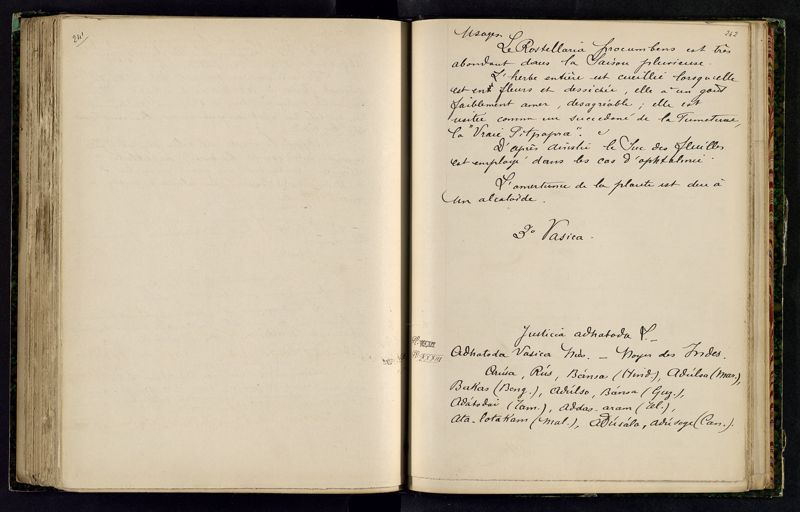 241
242
Usages
Le Rostellaria procumbens est très
abondant dans la Saison pluvieuse.
L'herbe entière est cueillie lorsqu'elle
est en fleurs et dessichée, elle a un goût
faiblement amer, desagréable ; elle est
usitée comme un succedané de la Fumeterre,
la "Vraie Pitpapra".
D'après Ainslie le Suc des feuilles
est employé dans les cas d'ophtalmie.
L'amertume de la plante est due à
un alcaloïde.
2o Vasica.
Justicia adhatoda L.
Adhatoda Vasica Nees. — Noyer des Indes.
Arusa, Rús, Bánsa (Hind.), Adulsa (Mar.),
Bakas (Beng.), Adulso, Bánsa (Guz.),
Adátodai (Tam.), Addas-aram (Tel.),
Ata-lotakam (Mal.), Adusála, adu soge (Can.).